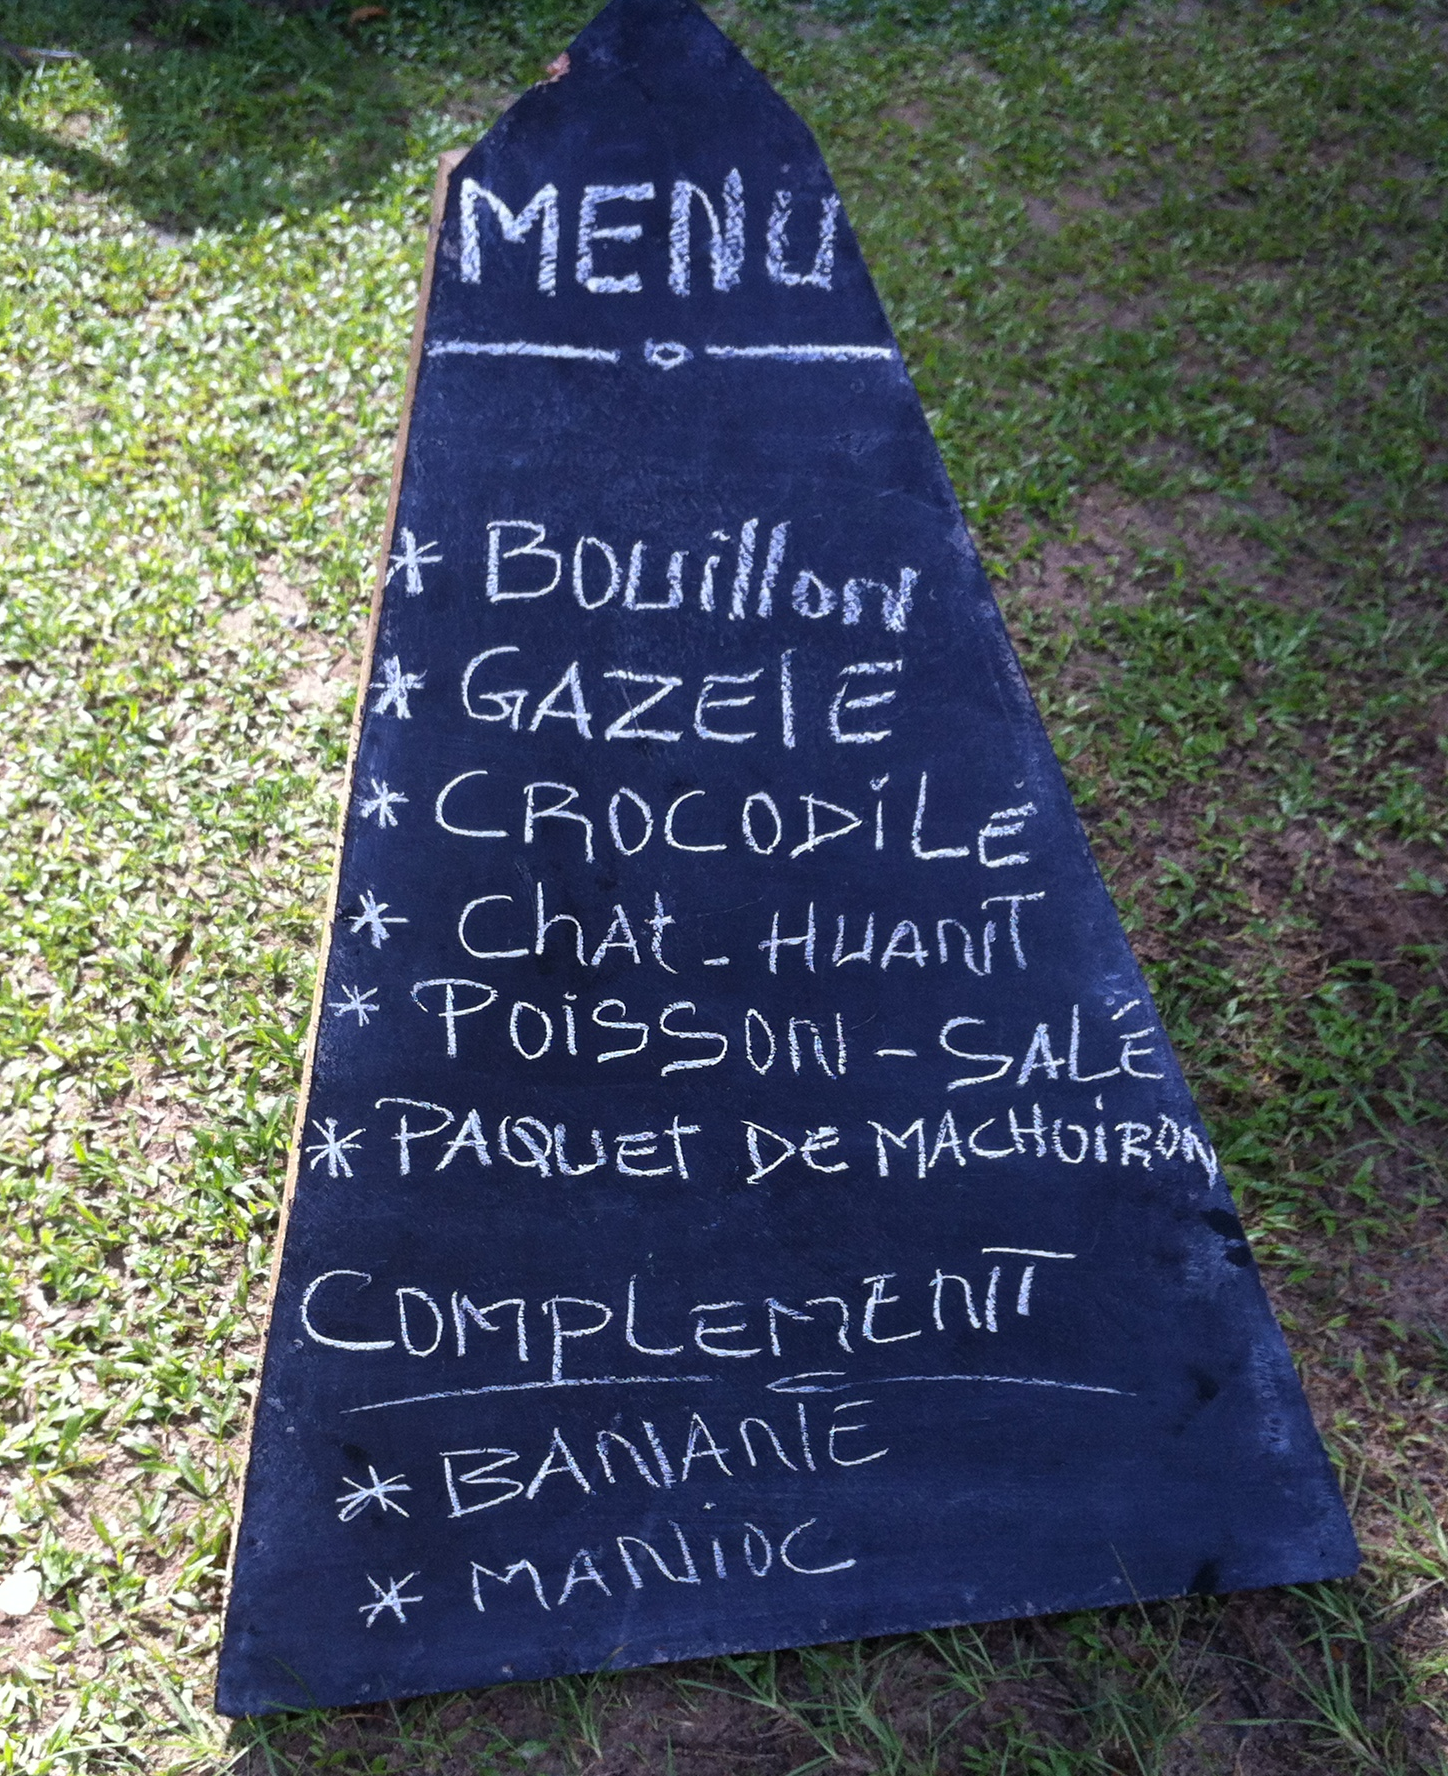 MENU
* Bouillon
* GAZElE
* CROCODiLE
* ChAt - HUANT
* POiSSON - SALÉ
* PAQUET DE MACHOiRON
COMPLEMENT
* BANANE
* MANiOC